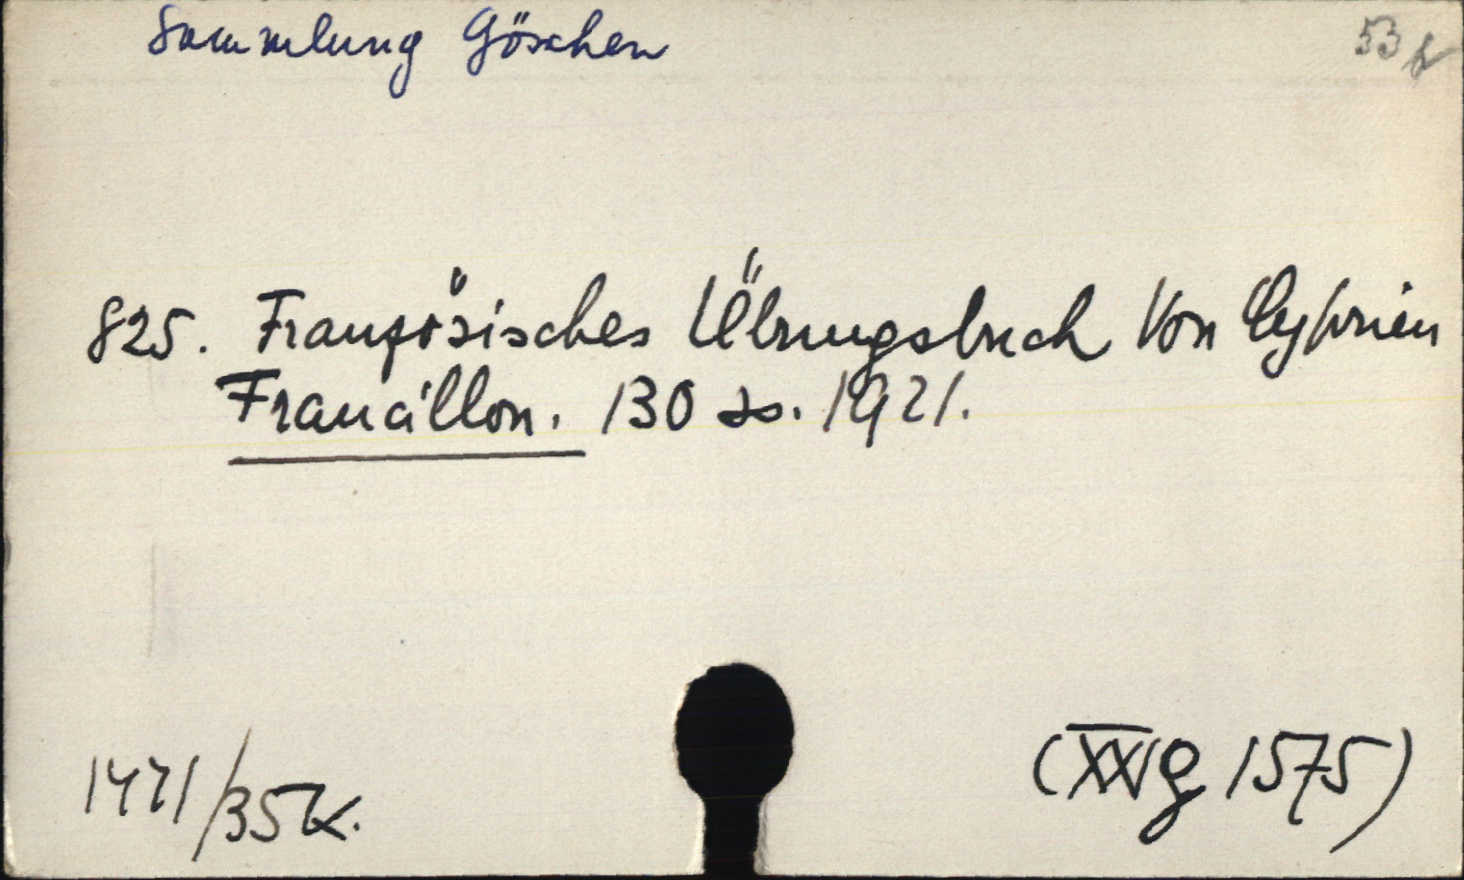 Sammlung Göschen
53
825. Französisches Übungsbuch Von Cyprien
Francillon. 130 ss. 1921.
1471/35 K.
(XXIg 1575)